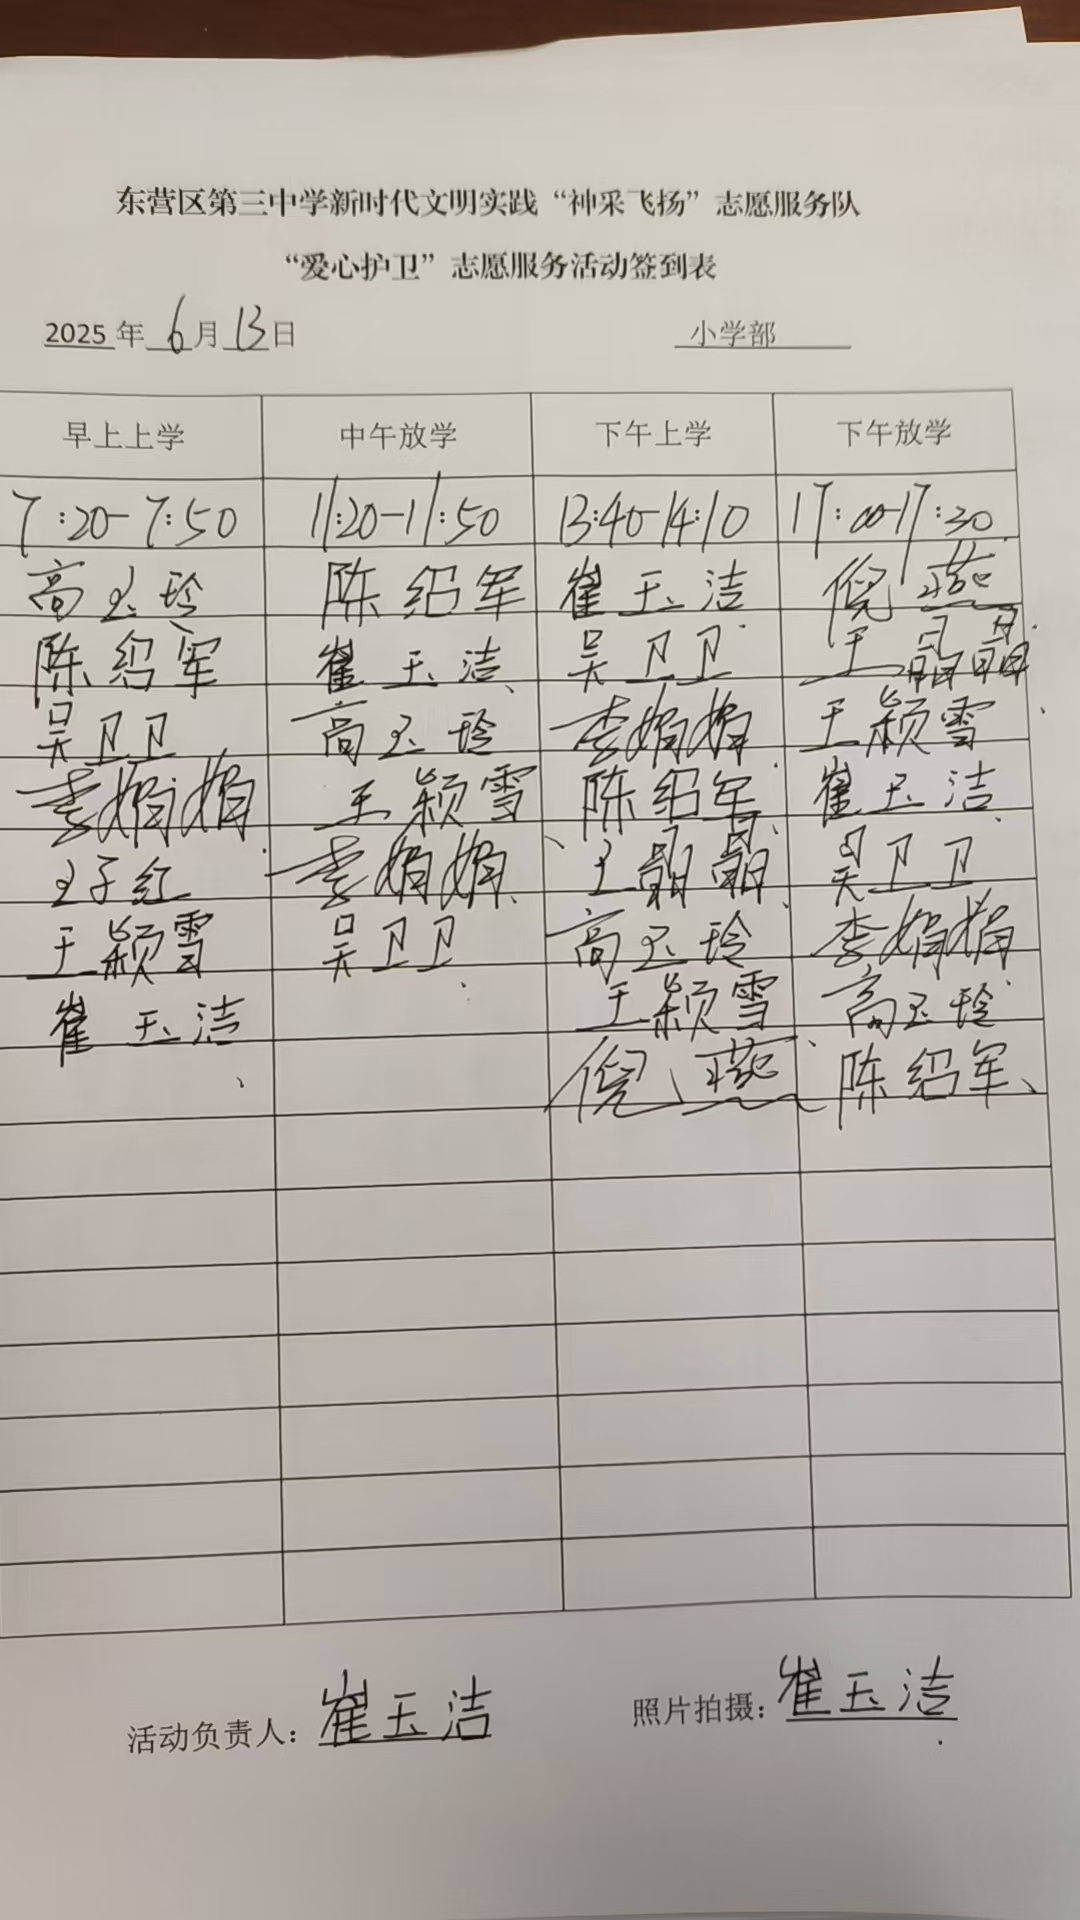 东营区第三中学新时代文明实践“神采飞扬”志愿服务队
“爱心护卫”志愿服务活动签到表
2025年6月13日 小学部
早上上学 中午放学 下午上学 下午放学
7:20-7:50 11:20-11:50 13:40-14:10 17:00-17:30
高玉玲 陈绍军 崔玉洁 倪燕
陈绍军 崔玉洁 吴卫卫 王晶晶
吴卫卫 高玉玲 李娟娟 王颖雪
李娟娟 王颖雪 陈绍军 崔玉洁
王子红 李娟娟 王晶晶 吴卫卫
王颖雪 吴卫卫 高玉玲 李娟娟
崔玉洁 王颖雪 高玉玲
倪燕 陈绍军
活动负责人：崔玉洁 照片拍摄：崔玉洁